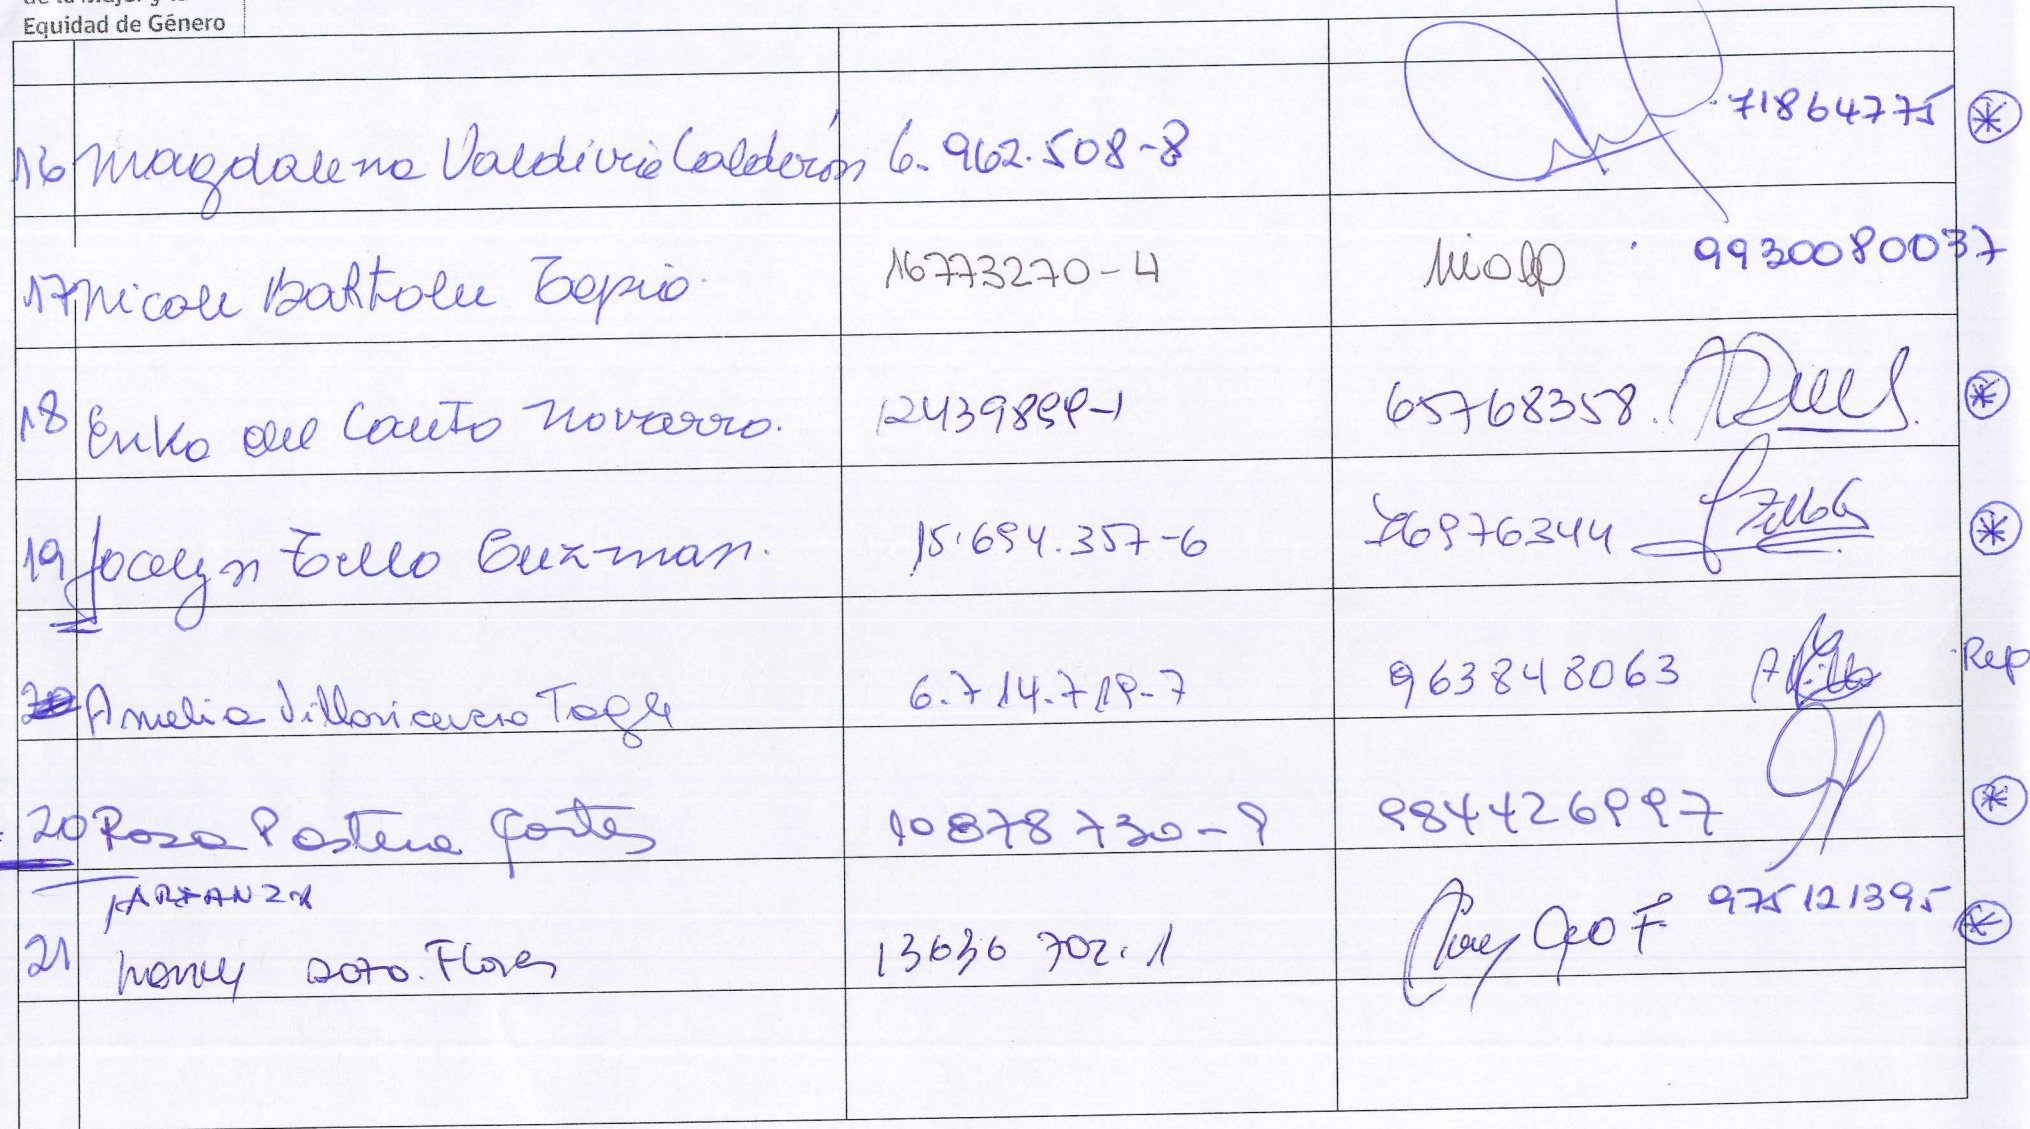 Equidad de Género
71864775
16 Magdalena Valdivia Calderón 6.962.508-8
17 Nicole Bartolu Tapia. 16773270-4 9930080037
18 Erika del Canto Navarro. 65768358.
19 Jocelyn Tello Guzman. 15.694.357-6 76976344
Amelia Villavicencio Tagle 6.714.719-7 963848063 Rep
20 Rosa Pastene Cortes 10878730-9 984426997
975121395
21 Nancy Soto. Flores 13636 702.1